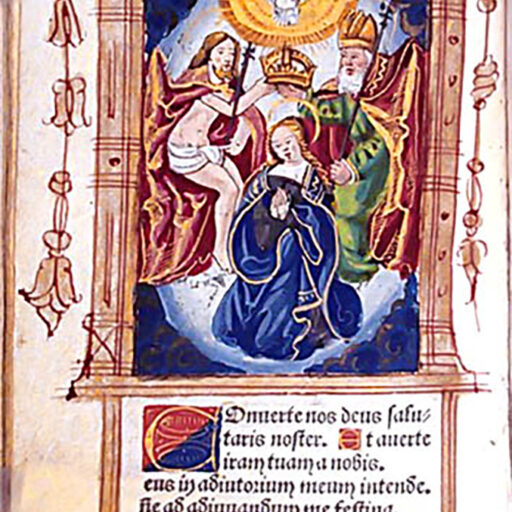 COnuerte nos deus salu-
taris noster. Et auerte
iram tuam a nobis.
eus in adiutorium meum intende.
ad adiuuandum me festina